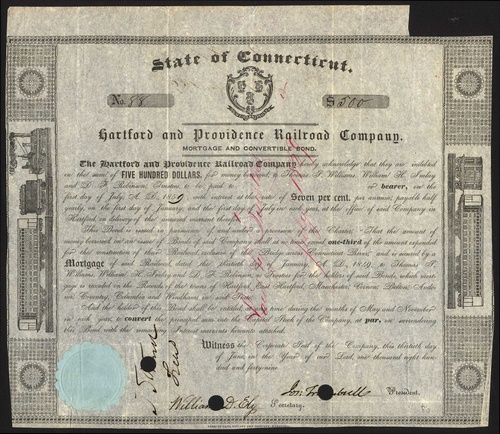 State of Connecticut.
No. 88
$ 500
Hartford and Providence Railroad Company.
MORTGAGE AND CONVERTIBLE BOND.
The Hartford and Providence Railroad Company hereby acknowledge that they are indebted
in the sum of FIVE HUNDRED DOLLARS, for money lent, to Thomas P. Williams, William H.
and D. F. Robinson, Trustees to be paid to or bearer, on the
first day of July, A. D. 1859, with interest at the rate of Seven per cent. per annum, payable half
yearly on the first day of January and the first day of July in each year, at the office of said Company in
Hartford, on delivery of the annexed warrant therefor.
This Bond is issued in pursuance of and under a provision of the Charter, "That the amount of
money borrowed on an issue of Bonds of said Company shall at no time exceed one-third of the amount expended
for the construction of their Railroad, exclusive of the Bridge across Connecticut River," and is secured by a
Mortgage of said Railroad, dated the first day of January, A. D. 1849, to Thomas P.
Williams, William H. and D. F. Robinson in Trust for the holders of said Bonds, which mort-
gage is recorded in the Records of the towns of Hartford, East Hartford, Manchester, Vernon, Bolton, Ando-
ver, Coventry, Columbia and Windham, in said State.
And the holder of this Bond shall be entitled at any time during the months of May and November
in each year, to convert the same into the Capital Stock of the Company, at par, on surrendering
this Bond with the interest warrants hereunto attached.
Witness the Corporate Seal of the Company, this thirtieth day
of June, in the Year of our Lord, one thousand eight hun-
dred and forty-nine.
William D. Ely
Secretary.
President.